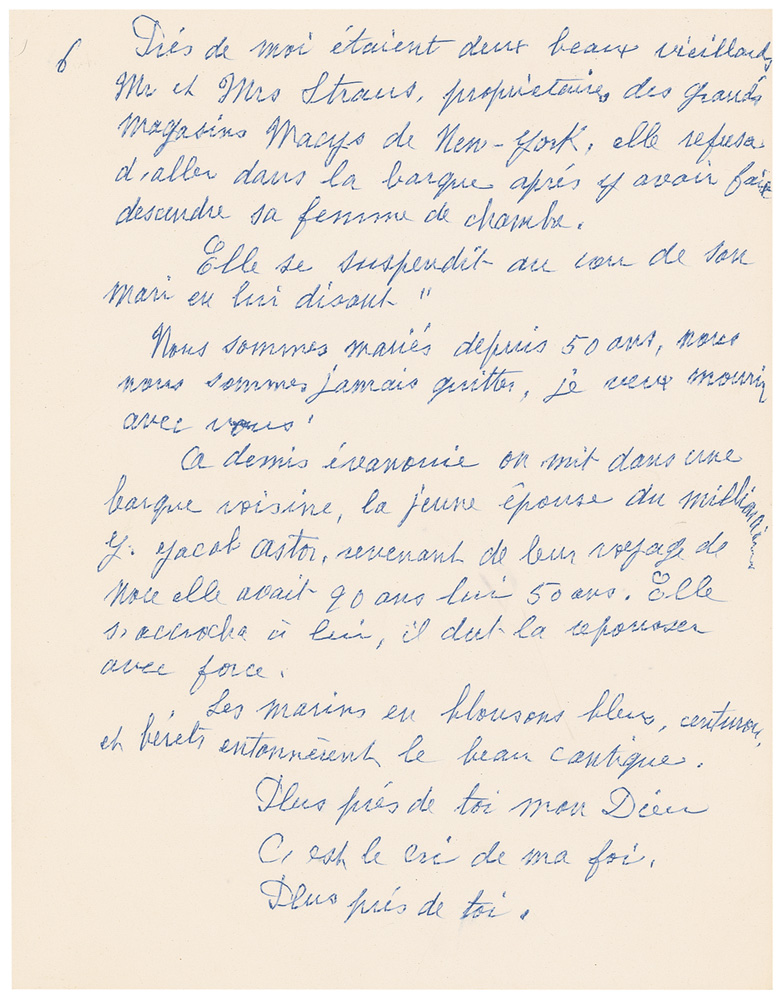 6
Piés de moi étaient deux beaux vieillards
Mr et Mrs Straus, propriétaires des grands
magasins Macys de New-York, elle refusa
d'aller dans la barque aprés y avoir fait
descendre sa femme de chambe.
Elle se suspendit au cou de son
mari en lui disant "
Nous sommes mariés depuis 50 ans, nous
nous sommes jamais quitter, je veux mourir
avec vous'
A demis évanouie on mit dans une
barque voisine, la jeune épouse du millionnaire
J. Jacob Astor, revenant de leur voyage de
Noce elle avait 90 ans lui 50 ans. Elle
s'accrocha à lui, il dut la repousser
avec force.
Les marins en blousons bleus, ceinturon,
et bérets entonnérent le beau cantique.
Plus prés de toi mon Dieu
C'est le cri de ma foi.
Plus prés de toi.